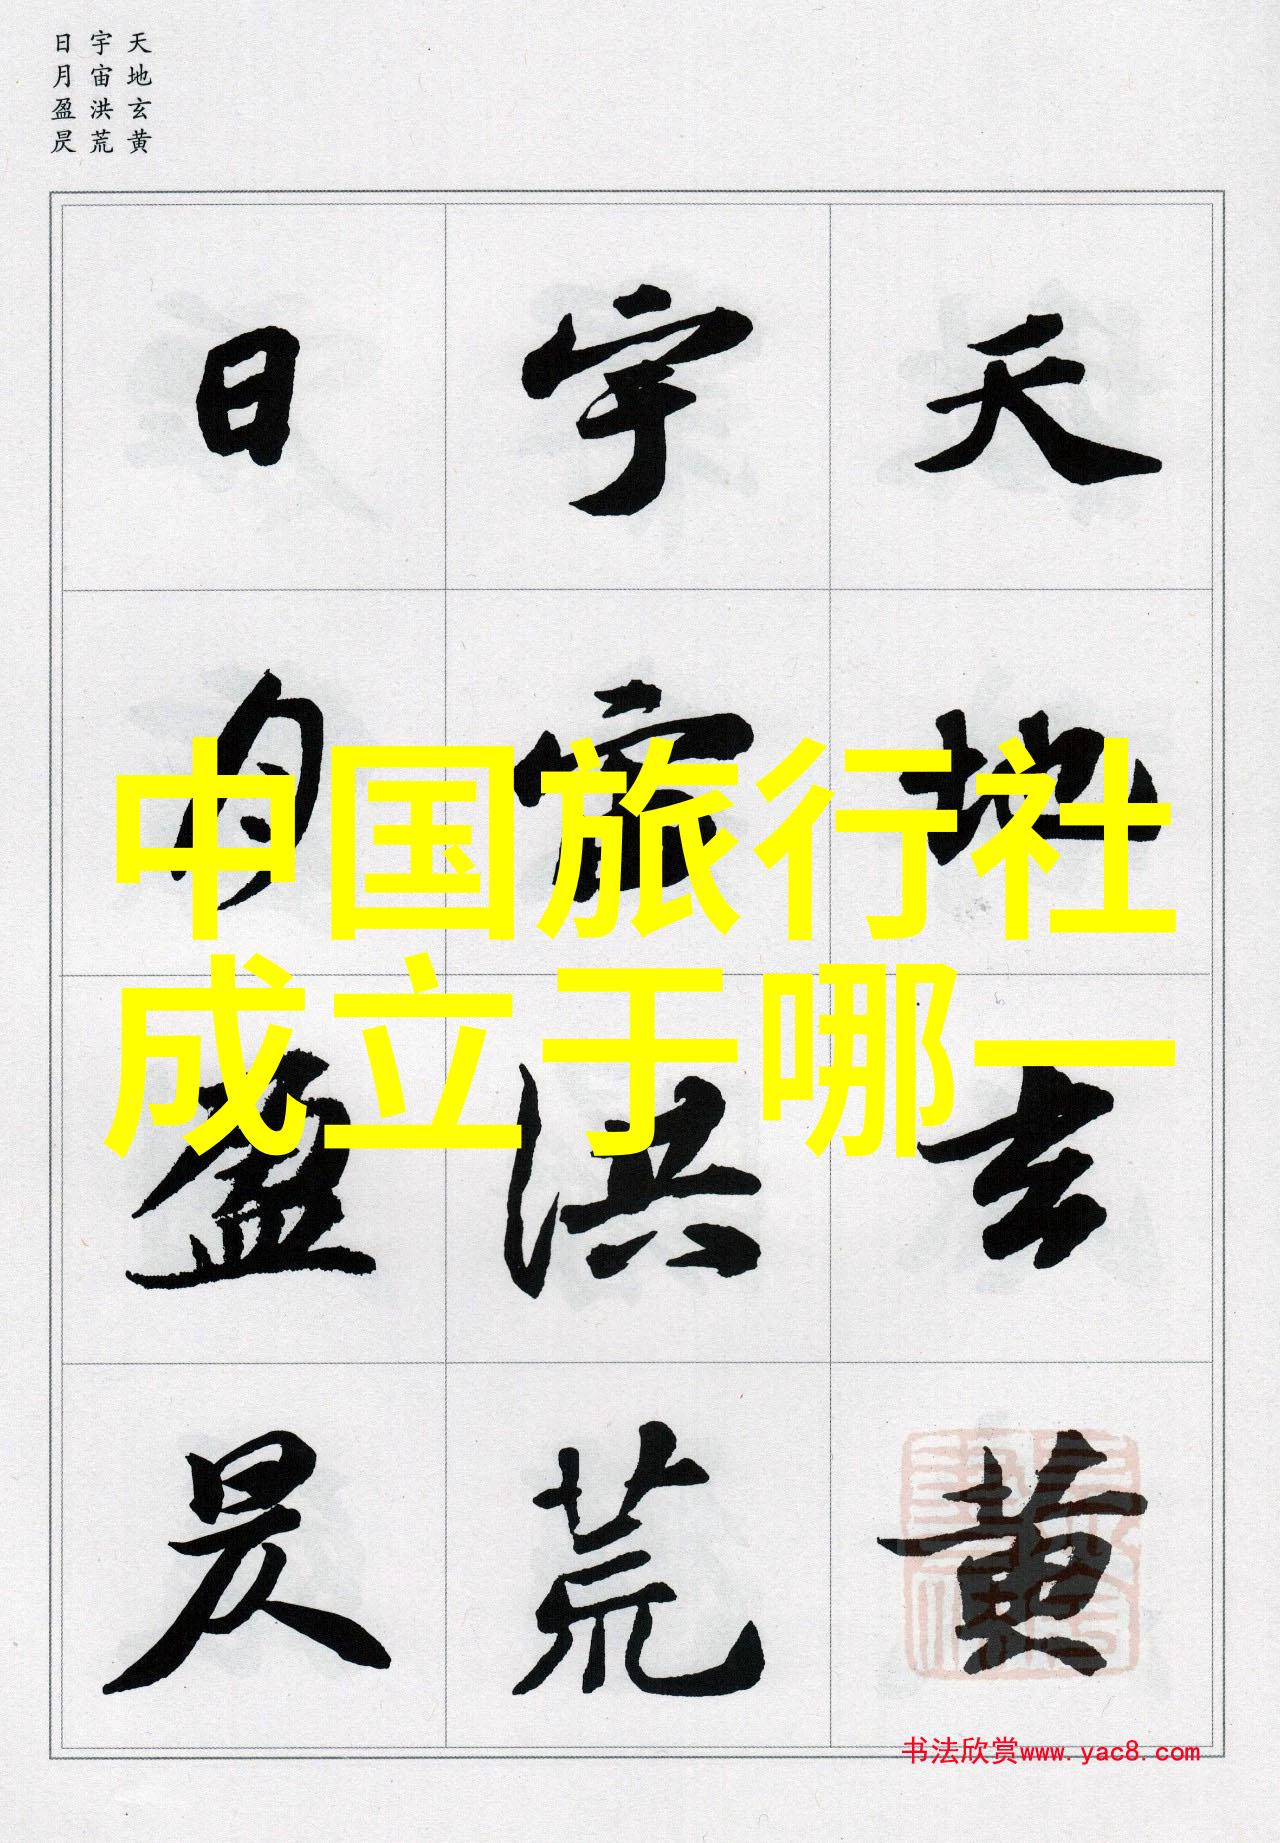 天地玄黄
宇宙洪荒
日月盈昃
天地玄黄
宇宙洪荒
日月盈昃
中国旅行社
成立于哪一
书法欣赏www.yac8.com